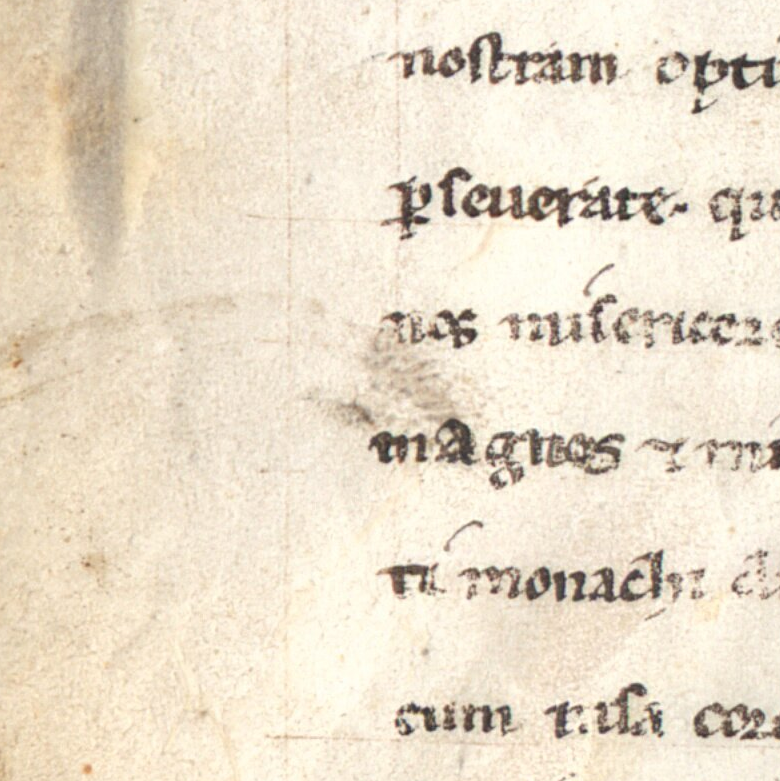 nostram opti
ꝑseuerate. qu
nos misericor
magnos ⁊ mi
ti monachi
cum